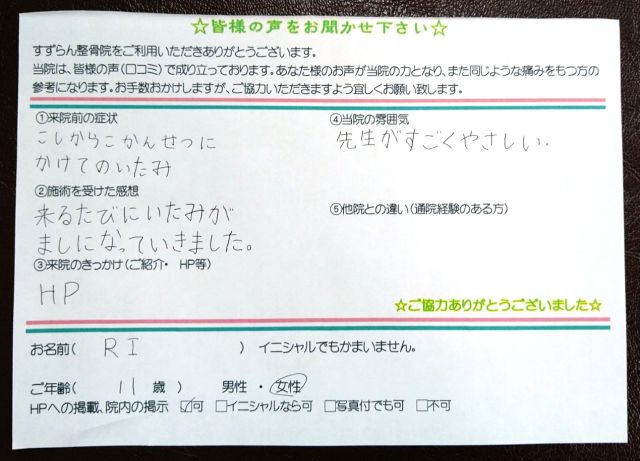 ☆皆様の声をお聞かせ下さい☆
すずらん整骨院をご利用いただきありがとうございます。
当院は、皆様の声(口コミ)で成り立っております。あなた様のお声が当院の力となり、また同じような痛みをもつ方の
参考になります。お手数おかけしますが、ご協力いただきますよう宜しくお願い致します。
①来院前の症状
こしからこかんせつに
かけてのいたみ
②施術を受けた感想
来るたびにいたみが
ましになっていきました。
③来院のきっかけ(ご紹介・ HP等)
HP
④当院の雰囲気
先生がすごくやさしい.
⑤他院との違い(通院経験のある方)
☆ご協力ありがとうございました☆
お名前( RI ) イニシャルでもかまいません。
ご年齢( 11 歳 ) 男性 ・ 女性
HPへの掲載、院内の掲示 ☑可 □イニシャルなら可 □写真付でも可 □不可